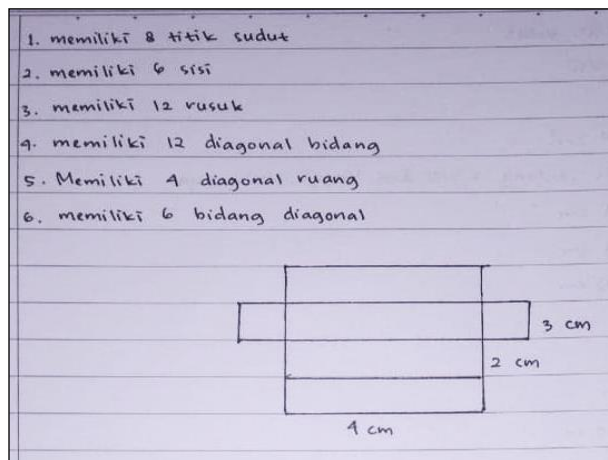 1. memiliki 8 titik sudut
2. memiliki 6 sisi
3. memiliki 12 rusuk
4. memiliki 12 diagonal bidang
5. Memiliki 4 diagonal ruang
6. memiliki 6 bidang diagonal
3 cm
2 cm
4 cm